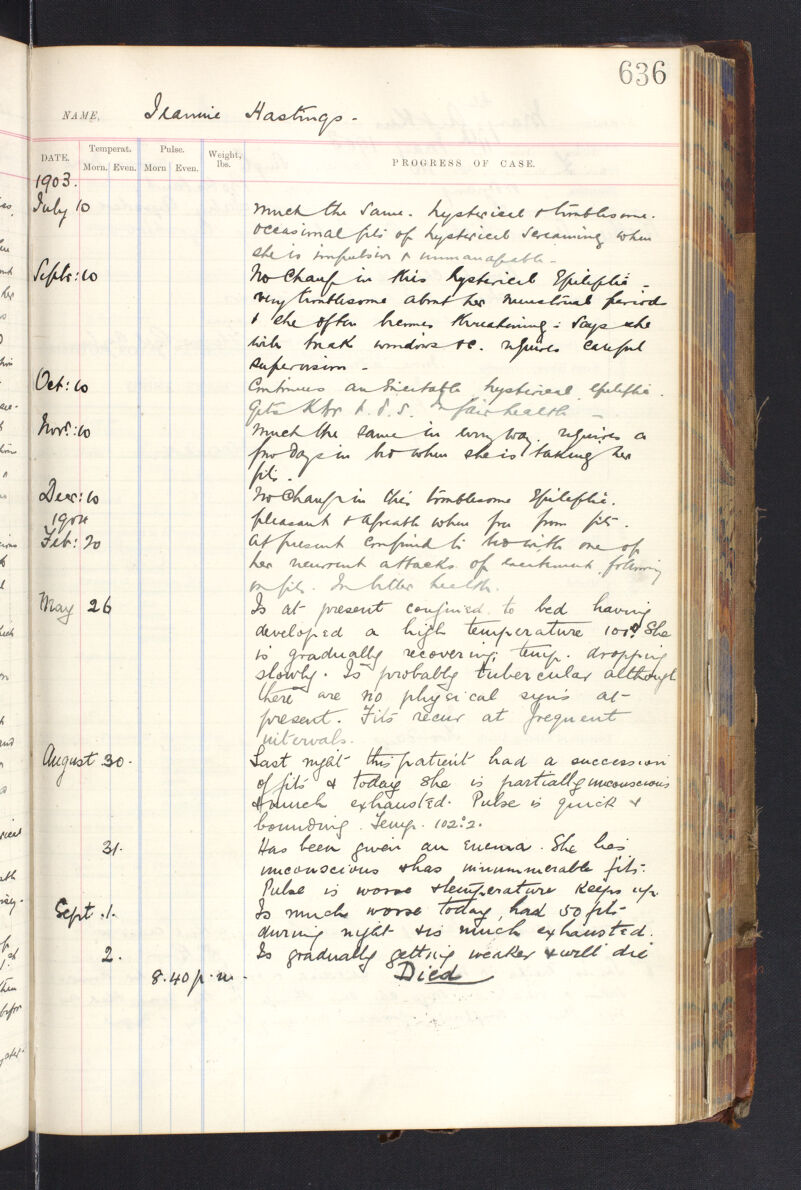 636
NAME, Jeannie Hastings -
DATE. Temperat. Pulse. Weight, lbs. PROGRESS OF CASE.
Morn. Even. Morn Even.
1903.
July 10 Much the same. hysterical & troublesome.
occasional fits of hysterical screaming when
she is impulsive & unmanageable -
Septr: 10 No change in this hysterical Epileptic -
very troublesome about her menstrual periods
& she often becomes threatening: says she
will break windows &c. requires careful
supervision -
Oct: 10 Continues an irritable hysterical epileptic.
Gets KBr t.d.S. In fair health -
Novr: 10 Much the same in every way. requires a
few days in bed when she is taking her
fits -
Decr: 10 No change in this troublesome Epileptic.
1904 pleasant & agreeable when free from fits -
Feb: 20 At present confined to bed with one of
her recurrent attacks of excitement following
on fits. In better health.
May 26 Is at present confined to bed having
developed a high temperature She
is gradually recovering, temp. dropping
slowly. Is probably tubercular although
there are no physical signs at
present. Fits recur at frequent
intervals.
August 30. Last night this patient had a succession
of fits & today she is partially unconscious
& much exhausted. Pulse is quick &
bounding. Temp. 102°.2.
31. Has been given an enema. She lies
unconscious & has innumerable fits.
Pulse is worse & temperature keeps up
Sept. 1. Is much worse today, had 50 fits
during night & is much exhausted.
2. Is gradually getting weaker & will die
8.40 p.m. Died